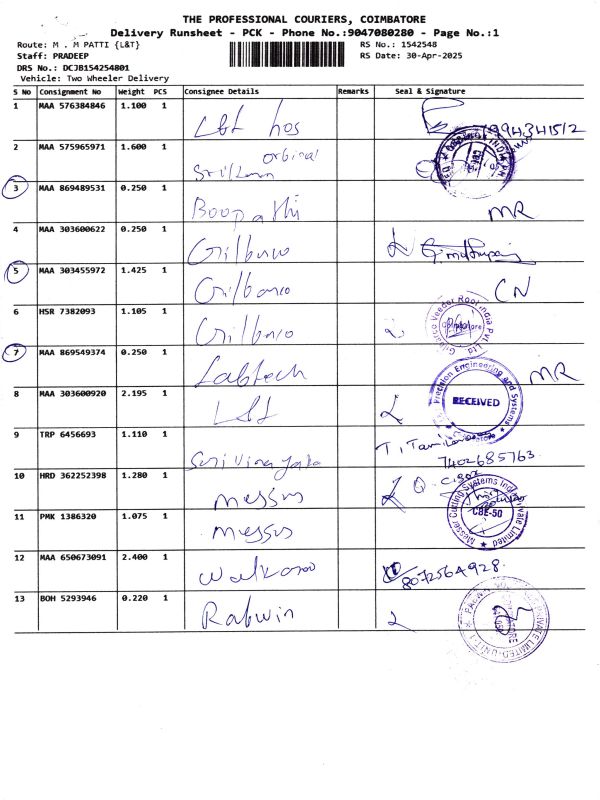 THE PROFESSIONAL COURIERS, COIMBATORE
Delivery Runsheet - PCK - Phone No.:9047080280 - Page No.:1
Route: M . M PATTI {L&T} RS No.: 1542548
Staff: PRADEEP RS Date: 30-Apr-2025
DRS No.: DCJB154254801
Vehicle: Two Wheeler Delivery
S No Consignment No Weight PCS Consignee Details Remarks Seal & Signature
1 MAA 576384846 1.100 1 L&t hos
2 MAA 575965971 1.600 1
3 MAA 869489531 0.250 1 Boopathi MR
4 MAA 303600622 0.250 1 Gilbarco
5 MAA 303455972 1.425 1 Gilbarco CN
6 HSR 7382093 1.105 1 Gilbarco Gilbarco Veeder Root India Pvt. Ltd. Coimbatore
7 MAA 869549374 0.250 1 Labtech MR
8 MAA 303600920 2.195 1 L&t Precision Engineering and Systems RECEIVED
9 TRP 6456693 1.110 1 7402685763
10 HRD 362252398 1.280 1 Messrs Messer Cutting Systems India Private Limited CBE-50
11 PMK 1386320 1.075 1 Messrs
12 MAA 650673091 2.400 1 8072564928
13 BOH 5293946 0.220 1 Rabwin PRIVATE LIMITED-UNIT-1